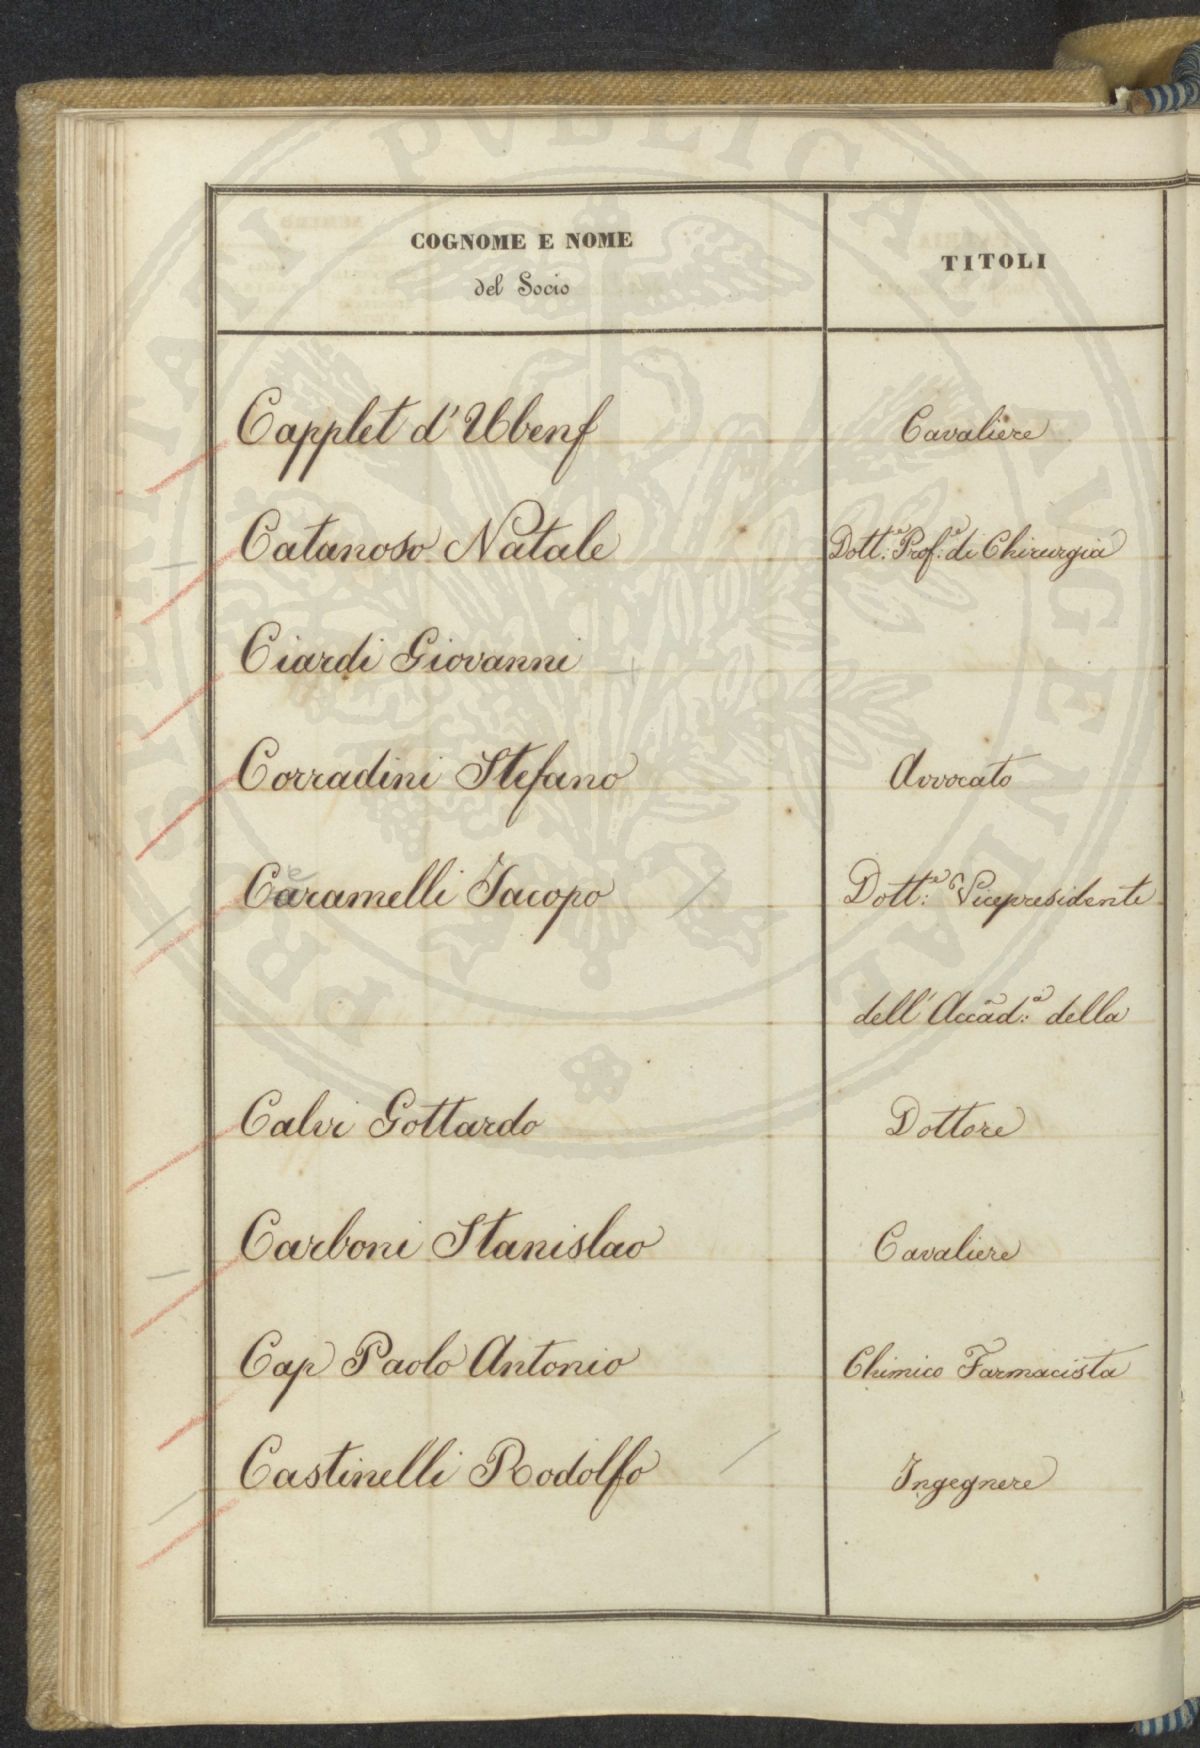 COGNOME E NOME
del Socio
TITOLI
Capplet d'Ubenf
Cavaliere
Catanoso Natale
Dott.e Prof.e di Chirurgia
Ciardi Giovanni
Corradini Stefano
Avvocato
Caramelli Jacopo
Dott.e Vicepresidente
dell'Accad:a della
Calvi Gottardo
Dottore
Carboni Stanislao
Cavaliere
Cap Paolo Antonio
Chimico Farmacista
Castinelli Rodolfo
Ingegnere
PROSPERITATI PVBLICAE AVGENDAE